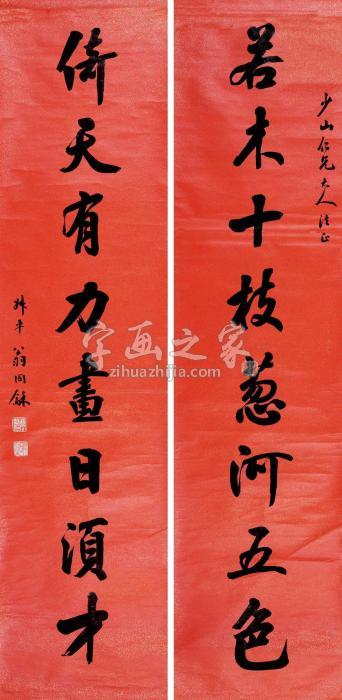 少山仁兄大人法正
若木十枝葱河五色
倚天有力畫日須才
叔平翁同龢
字画之家
zihuazhijia.com